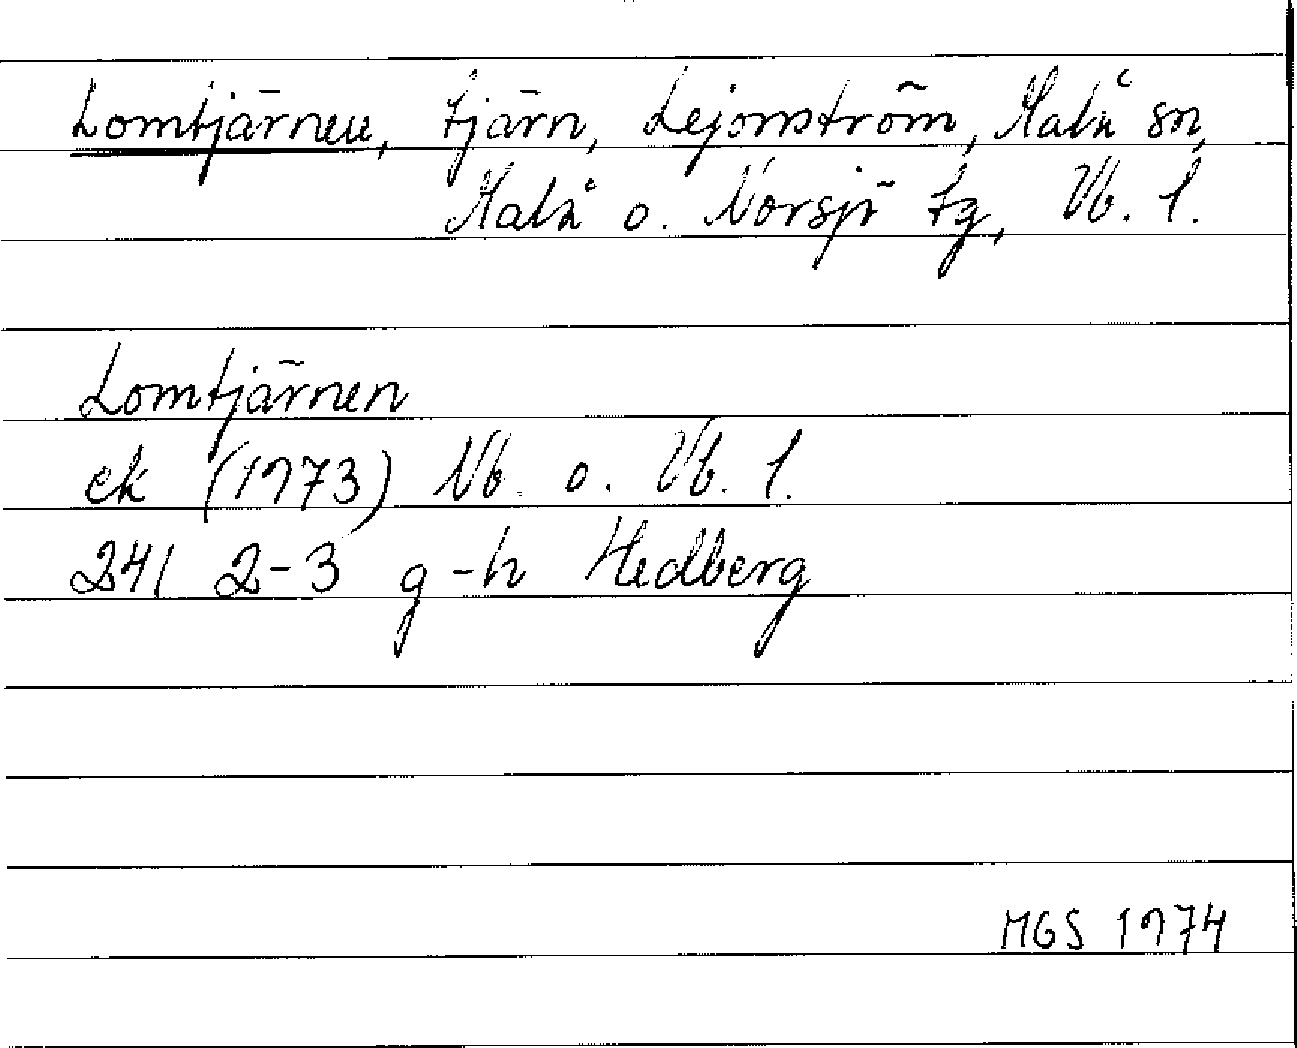 Lomtjärnen, tjärn, Lejonström, Malå sn,
Malå o. Norsjö tg, Vb. l.
Lomtjärnen
ek (1973) Nb. o. Vb. l.
24I 2-3 g-h Hedberg
MGS 1974